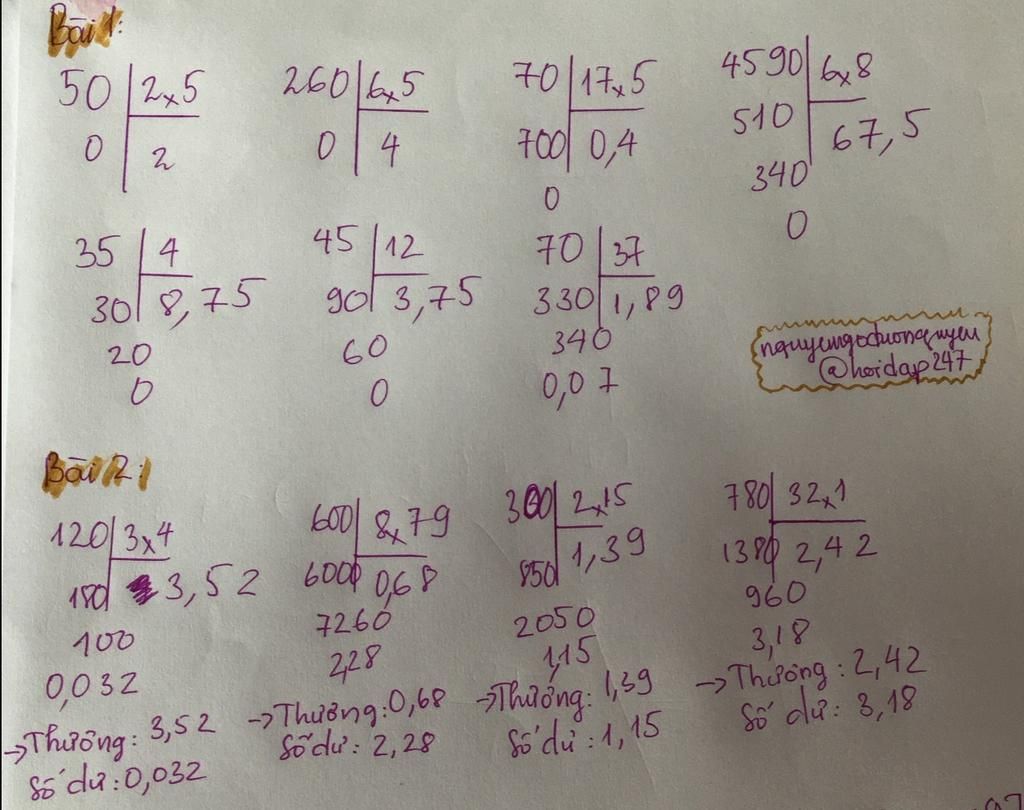 Bài 1:
50 2x5
0 2
260 6x5
0 4
70 17x5
700 0,4
0
4590 6x8
510 67,5
340
0
35 4
30 8,75
20
0
45 12
90 3,75
60
0
70 37
330 1,89
340
0,07
@hoidap247
Bài 2:
120 3x4
180 3,52
100
0,032
→Thương: 3,52
Số dư: 0,032
600 8x79
6000 0,68
7260
2,28
→Thương: 0,68
Số dư: 2,28
300 2x15
850 1,39
2050
1,15
→Thương: 1,39
Số dư: 1,15
780 32x1
1380 2,42
960
3,18
→Thương: 2,42
Số dư: 3,18